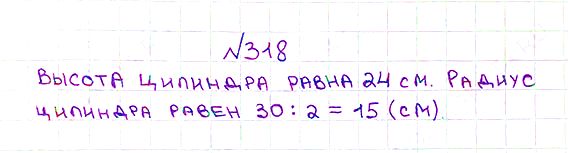 №318
Высота цилиндра равна 24 см. Радиус
цилиндра равен 30 : 2 = 15 (см)